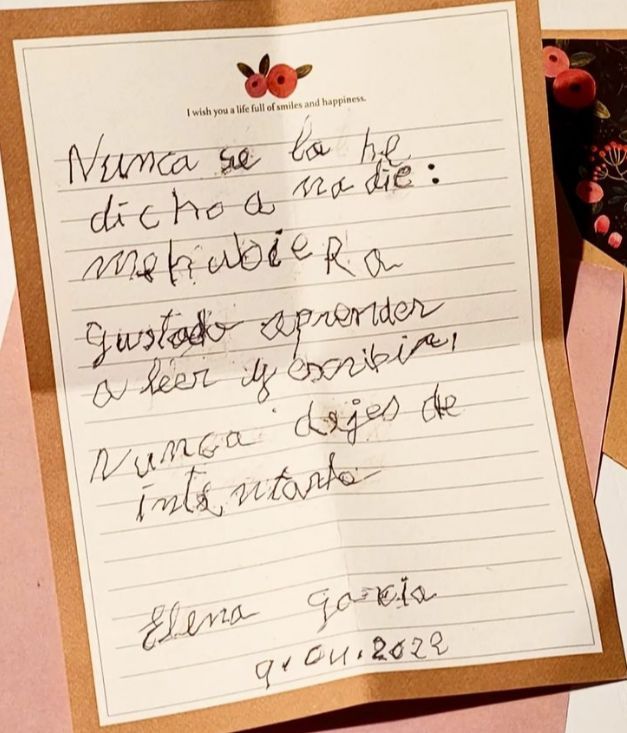 I wish you a life full of smiles and happiness.
Nunca se lo he
dicho a nadie:
me hubieRa
gustado aprender
a leer y escribir,
Nunca dejes de
intentarlo
Elena García
9.04.2022